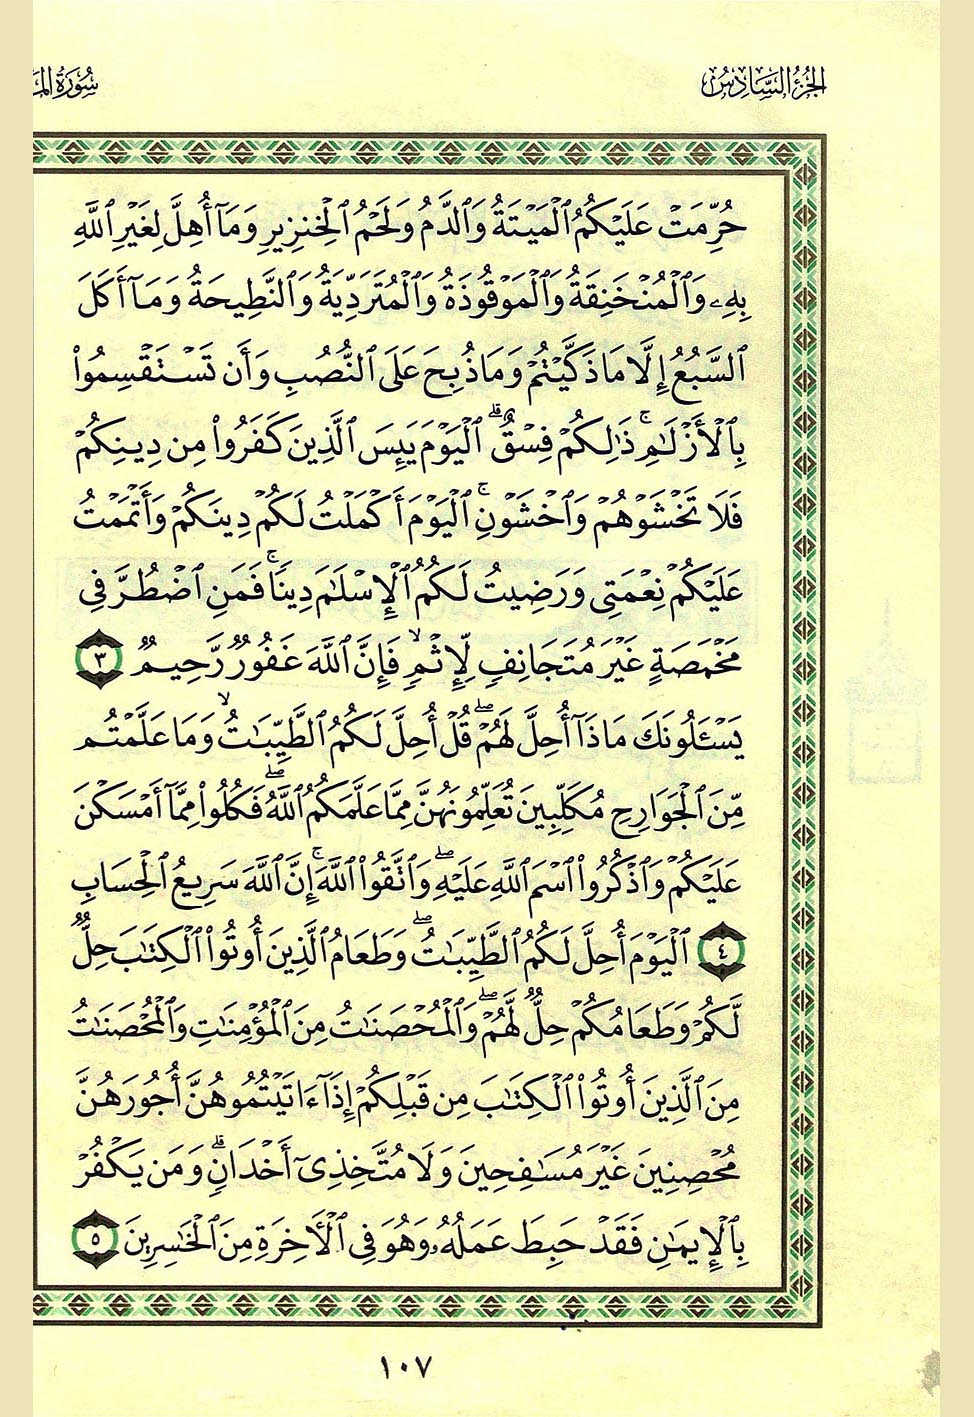 الجزء السادس
سورة الم
حُرِّمَتْ عَلَيْكُمُ ٱلْمَيْتَةُ وَٱلدَّمُ وَلَحْمُ ٱلْخِنزِيرِ وَمَآ أُهِلَّ لِغَيْرِ ٱللَّهِ
بِهِۦ وَٱلْمُنْخَنِقَةُ وَٱلْمَوْقُوذَةُ وَٱلْمُتَرَدِّيَةُ وَٱلنَّطِيحَةُ وَمَآ أَكَلَ
ٱلسَّبُعُ إِلَّا مَا ذَكَّيْتُمْ وَمَا ذُبِحَ عَلَى ٱلنُّصُبِ وَأَن تَسْتَقْسِمُوا۟
بِٱلْأَزْلَٰمِ ۚ ذَٰلِكُمْ فِسْقٌ ۗ ٱلْيَوْمَ يَئِسَ ٱلَّذِينَ كَفَرُوا۟ مِن دِينِكُمْ
فَلَا تَخْشَوْهُمْ وَٱخْشَوْنِ ۚ ٱلْيَوْمَ أَكْمَلْتُ لَكُمْ دِينَكُمْ وَأَتْمَمْتُ
عَلَيْكُمْ نِعْمَتِى وَرَضِيتُ لَكُمُ ٱلْإِسْلَٰمَ دِينًا ۚ فَمَنِ ٱضْطُرَّ فِى
مَخْمَصَةٍ غَيْرَ مُتَجَانِفٍ لِّإِثْمٍ ۙ فَإِنَّ ٱللَّهَ غَفُورٌ رَّحِيمٌ ٣
يَسْـَٔلُونَكَ مَاذَآ أُحِلَّ لَهُمْ ۖ قُلْ أُحِلَّ لَكُمُ ٱلطَّيِّبَٰتُ ۙ وَمَا عَلَّمْتُم
مِّنَ ٱلْجَوَارِحِ مُكَلِّبِينَ تُعَلِّمُونَهُنَّ مِمَّا عَلَّمَكُمُ ٱللَّهُ ۖ فَكُلُوا۟ مِمَّآ أَمْسَكْنَ
عَلَيْكُمْ وَٱذْكُرُوا۟ ٱسْمَ ٱللَّهِ عَلَيْهِ ۖ وَٱتَّقُوا۟ ٱللَّهَ ۚ إِنَّ ٱللَّهَ سَرِيعُ ٱلْحِسَابِ
٤ ٱلْيَوْمَ أُحِلَّ لَكُمُ ٱلطَّيِّبَٰتُ ۖ وَطَعَامُ ٱلَّذِينَ أُوتُوا۟ ٱلْكِتَٰبَ حِلٌّ
لَّكُمْ وَطَعَامُكُمْ حِلٌّ لَّهُمْ ۖ وَٱلْمُحْصَنَٰتُ مِنَ ٱلْمُؤْمِنَٰتِ وَٱلْمُحْصَنَٰتُ
مِنَ ٱلَّذِينَ أُوتُوا۟ ٱلْكِتَٰبَ مِن قَبْلِكُمْ إِذَآ ءَاتَيْتُمُوهُنَّ أُجُورَهُنَّ
مُحْصِنِينَ غَيْرَ مُسَٰفِحِينَ وَلَا مُتَّخِذِىٓ أَخْدَانٍ ۗ وَمَن يَكْفُرْ
بِٱلْإِيمَٰنِ فَقَدْ حَبِطَ عَمَلُهُۥ وَهُوَ فِى ٱلْأَخِرَةِ مِنَ ٱلْخَٰسِرِينَ ٥
١٠٧